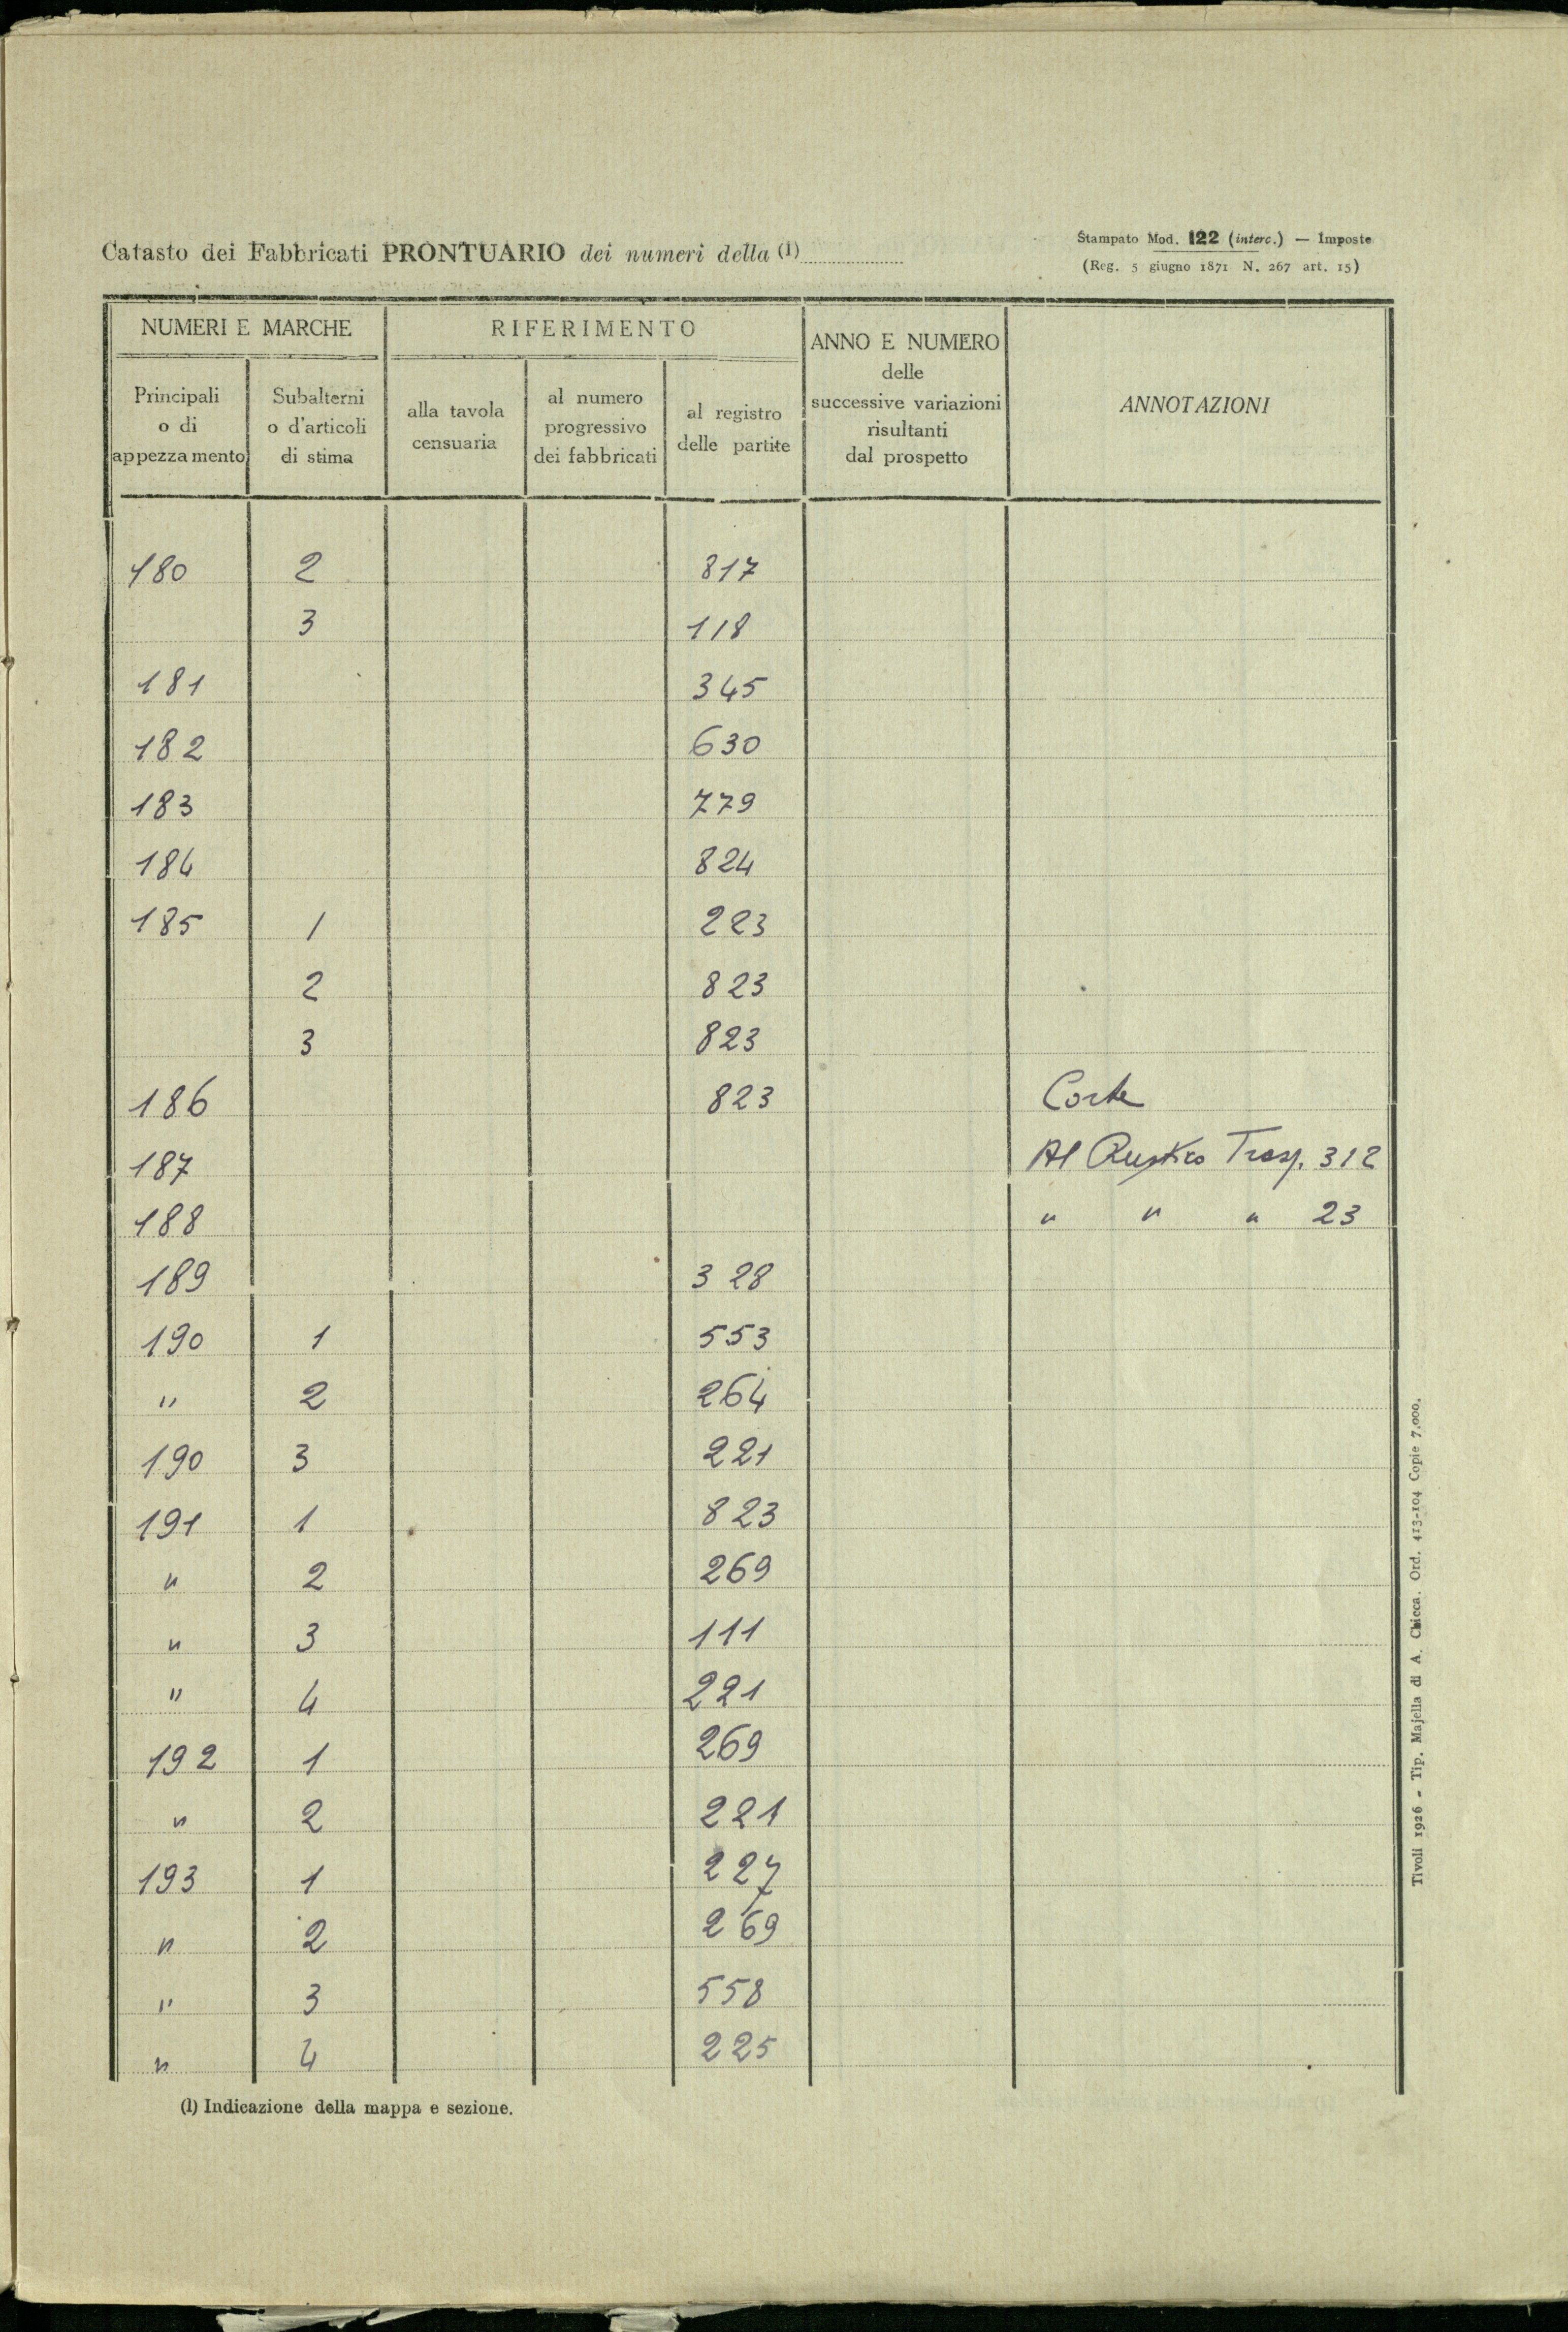 Catasto dei Fabbricati PRONTUARIO dei numeri della (1)
Stampato Mod. 122 (interc.) — Imposte
(Reg. 5 giugno 1871 N. 267 art. 15)
NUMERI E MARCHE
RIFERIMENTO
ANNO E NUMERO
delle
successive variazioni
risultanti
dal prospetto
ANNOTAZIONI
Principali
o di
appezzamento
Subalterni
o d'articoli
di stima
alla tavola
censuaria
al numero
progressivo
dei fabbricati
al registro
delle partite
180 2 817
3 118
181 345
182 630
183 779
184 824
185 1 223
2 823
3 823
186 823 Corte
187 Al Rustico Trasp. 312
188 " " " 23
189 328
190 1 553
" 2 264
190 3 221
191 1 823
" 2 269
" 3 111
" 4 221
192 1 269
" 2 221
193 1 227
" 2 269
" 3 558
" 4 225
(1) Indicazione della mappa e sezione.
Tivoli 1926 - Tip. Majella di A. Chicca. Ord. 413-104 Copie 7.000.